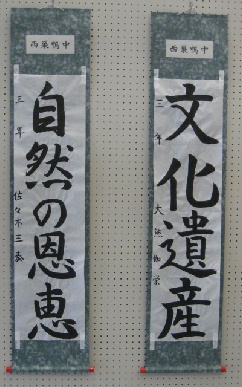 西巣鴨中
文化遺産
三年
西巣鴨中
自然の恩恵
三年 佐々木三恭